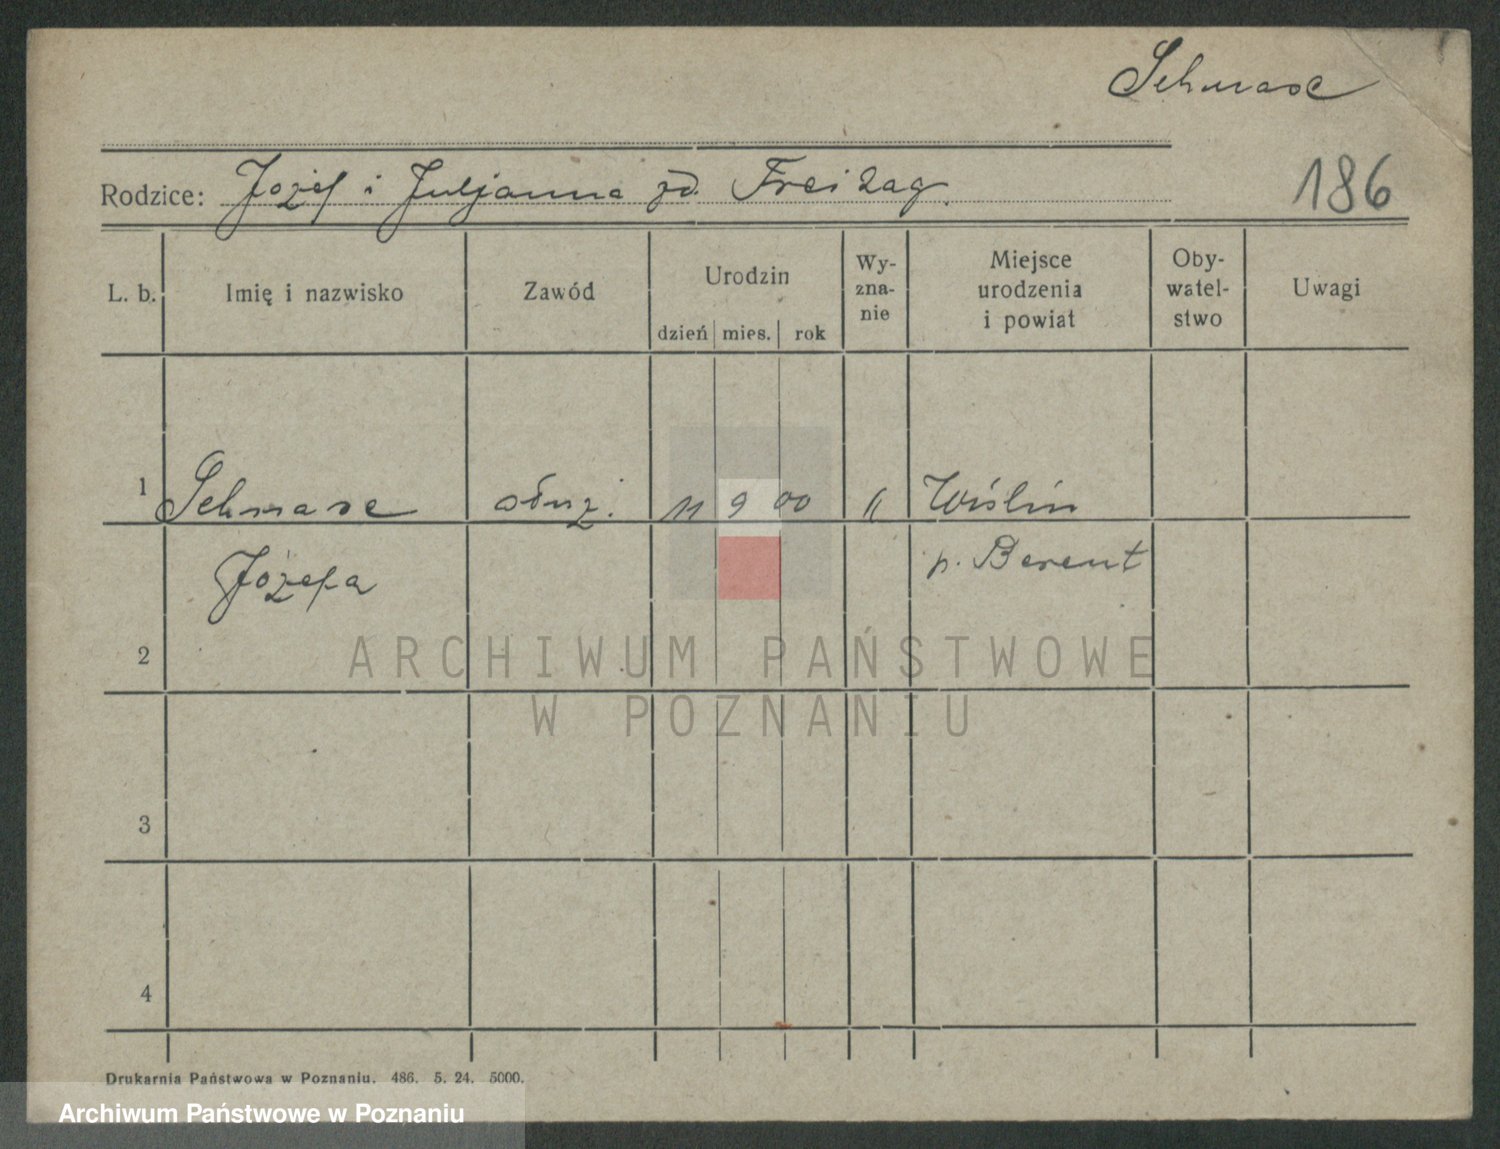 Schmase
Rodzice: Józef i Juljanna zd. Freitag.
186
L. b.
Imię i nazwisko
Zawód
Urodzin
dzień mies. rok
Wy-
zna-
nie
Miejsce
urodzenia
i powiat
Oby-
watel-
stwo
Uwagi
1 Schmase służ. 11 9 00 " Wiślin
Józefa p. Berent
2
3
4
ARCHIWUM PAŃSTWOWE
W POZNANIU
Drukarnia Państwowa w Poznaniu. 486. 5. 24. 5000.
Archiwum Państwowe w Poznaniu